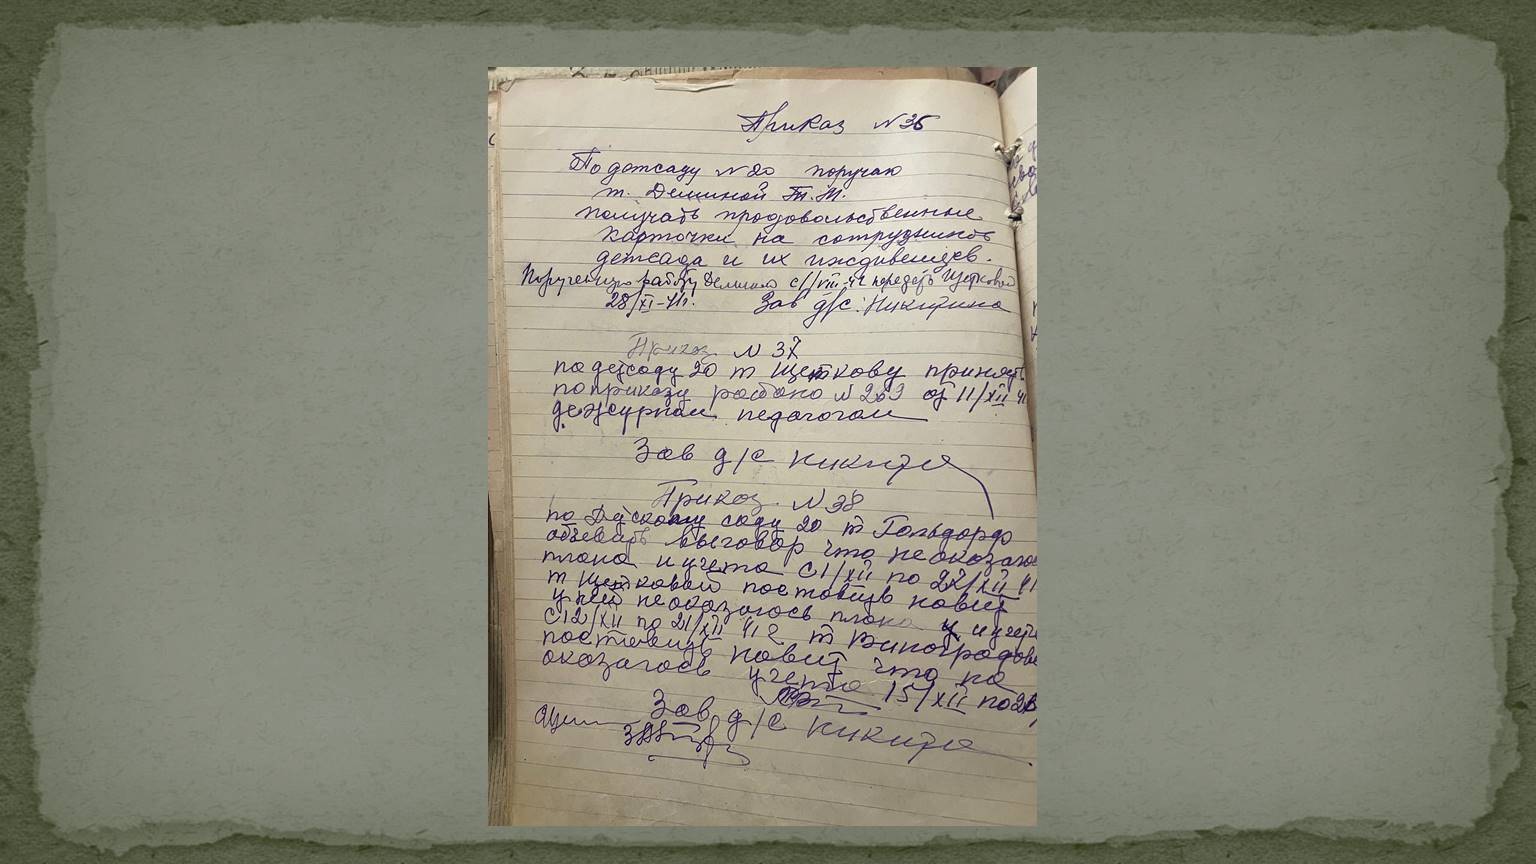 Приказ N 36
По детсаду N 20 поручаю
т. Деминой Т.М.
получать продовольственные
карточки на сотрудников
детсада и их иждивенцев.
Порученную работу Демина с 1/VIII-42 передать Щетковой
28/XI-41г. Зав д/с. Никитина
Приказ N 37
по детсаду 20 т Щеткову принять
по приказу районо N 269 от 11/XII 41
дежурным педагогом
Зав д/с Никити
Приказ N 38
по Детскому саду 20 т Гольдордо
объевить выговор что не оказалос
плана и учета с 1/XII по 27/XII 41
т Щетковой поставить навид
у ней неоказалось плана и учета
с 12/XII по 21/XII 41 г т Виноградове
поставить навид что не
оказалось учета 15/XII по
Зав д/с Никити